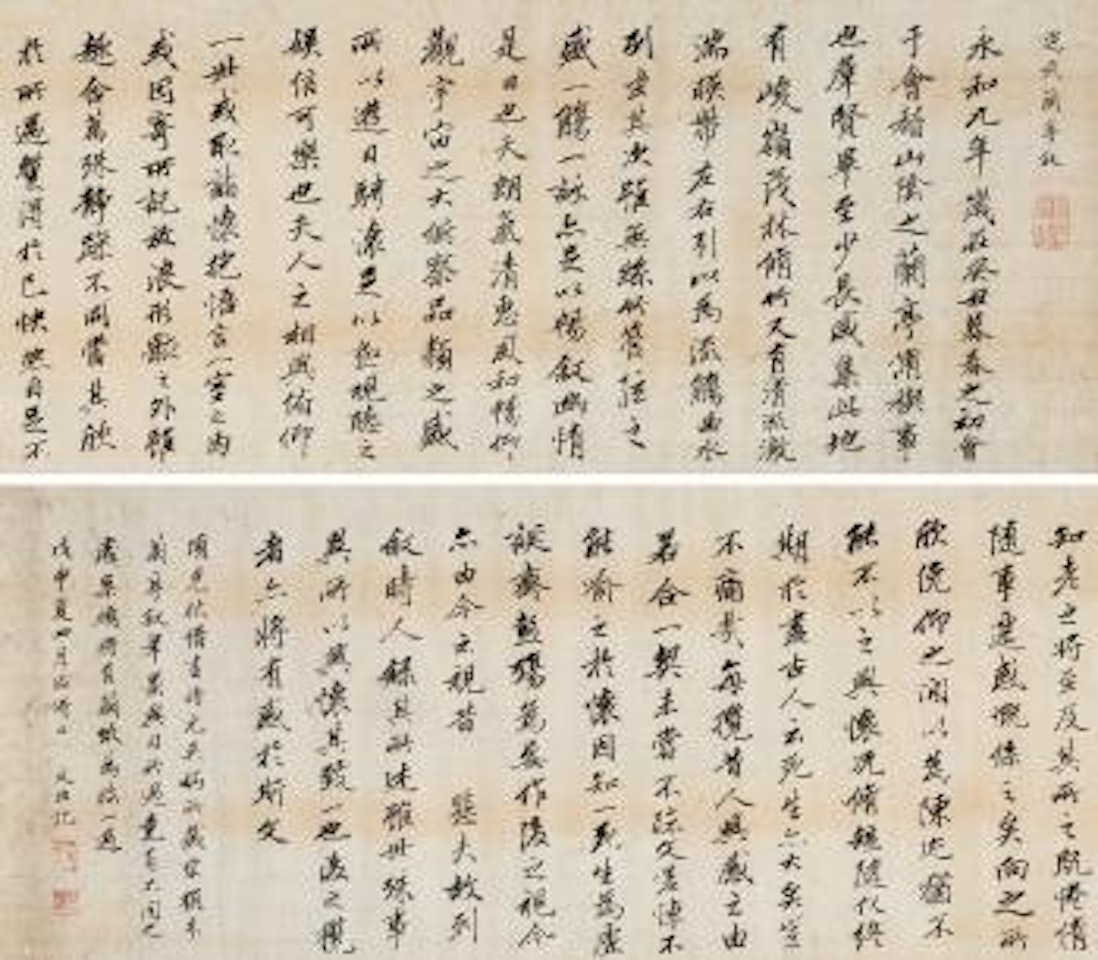 定武蘭亭
永和九年歲在癸丑暮春之初會
于會稽山陰之蘭亭脩禊事
也羣賢畢至少長咸集此地
有峻嶺茂林脩竹又有清流激
湍暎帶左右引以為流觴曲水
列坐其次雖無絲竹管絃之
盛一觴一詠亦足以暢敘幽情
是日也天朗氣清惠風和暢仰
觀宇宙之大俯察品類之盛
所以遊目騁懷足以極視聽之
娛信可樂也夫人之相與俯仰
一世或取諸懷抱悟言一室之內
或因寄所託放浪形骸之外雖
趣舍萬殊靜躁不同當其欣
於所遇暫得於己快然自足不
知老之將至及其所之既惓情
隨事遷感慨係之矣向之所
欣俛仰之閒以為陳迹猶不
能不以之興懷況脩短隨化終
期於盡古人云死生亦大矣豈
不痛哉每攬昔人興感之由
若合一契未嘗不臨文嗟悼不
能喻之於懷固知一死生為虛
誕齊彭殤為妄作後之視今
亦由今之視昔 悲夫故列
敘時人錄其所述雖世殊事
異所以興懷其致一也後之攬
者亦將有感於斯文
戊申夏四月